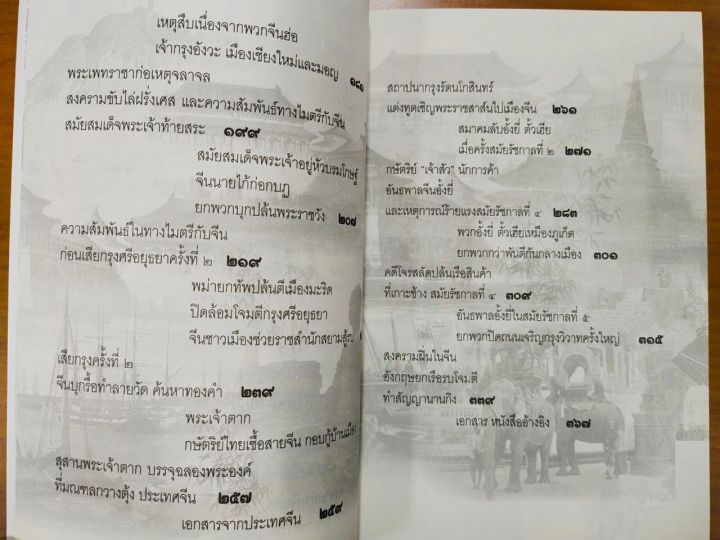 เหตุสืบเนื่องจากพวกจีนฮ่อ
เจ้ากรุงอังวะ เมืองเชียงใหม่และมอญ ๑๘๑
พระเพทราชาก่อเหตุจลาจล
สงครามขับไล่ฝรั่งเศส และความสัมพันธ์ทางไมตรีกับจีน
สมัยสมเด็จพระเจ้าท้ายสระ ๑๙๙
สมัยสมเด็จพระเจ้าอยู่หัวบรมโกษฐ์
จีนนายไก้ก่อกบฏ
ยกพวกบุกปล้นพระราชวัง ๒๐๗
ความสัมพันธ์ในทางไมตรีกับจีน
ก่อนเสียกรุงศรีอยุธยาครั้งที่ ๒ ๒๑๙
พม่ายกทัพปล้นตีเมืองมะริด
ปิดล้อมโจมตีกรุงศรีอยุธยา
จีนชาวเมืองช่วยราชสำนักสยามสู้รบ
เสียกรุงครั้งที่ ๒
จีนบุกรื้อทำลายวัด ค้นหาทองคำ ๒๓๙
พระเจ้าตาก
กษัตริย์ไทยเชื้อสายจีน กอบกู้บ้านเมือง
สุสานพระเจ้าตาก บรรจุฉลองพระองค์
ที่มณฑลกวางตุ้ง ประเทศจีน ๒๕๗
เอกสารจากประเทศจีน ๒๕๙
สถาปนากรุงรัตนโกสินทร์
แต่งทูตเชิญพระราชสาส์นไปเมืองจีน ๒๖๑
สมาคมลับอั้งยี่ ตั้วเฮีย
เมื่อครั้งสมัยรัชกาลที่ ๒ ๒๗๑
กษัตริย์ "เจ้าสัว" นักการค้า
อันธพาลจีนอั้งยี่
และเหตุการณ์ร้ายแรงสมัยรัชกาลที่ ๔ ๒๘๓
พวกอั้งยี่ ตั้วเฮียเหมืองภูเก็ต
ยกพวกกว่าพันตีกันกลางเมือง ๓๐๑
คดีโจรสลัดปล้นเรือสินค้า
ที่เกาะช้าง สมัยรัชกาลที่ ๔ ๓๐๙
อันธพาลอั้งยี่ในสมัยรัชกาลที่ ๕
ยกพวกปิดถนนเจริญกรุงวิวาทครั้งใหญ่ ๓๑๕
สงครามฝิ่นในจีน
อังกฤษยกเรือรบโจมตี
ทำสัญญานานกิง ๓๓๙
เอกสาร หนังสืออ้างอิง ๓๖๗